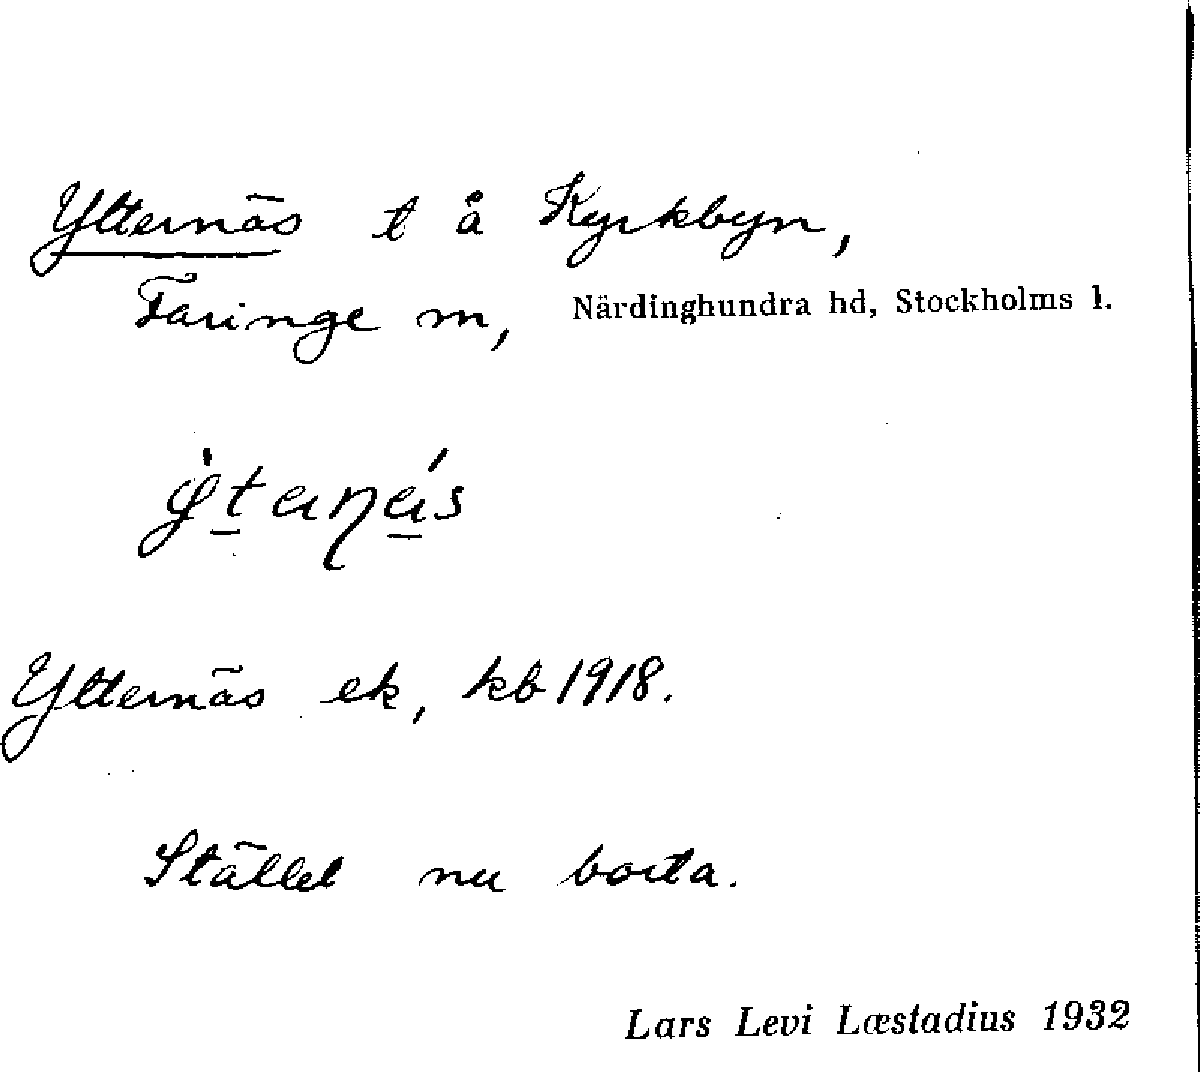 Ytternäs t å Kyrkbyn,
Faringe m, Närdinghundra hd, Stockholms l.
Ytternäs ek, kb 1918.
Stället nu borta.
Lars Levi Læstadius 1932